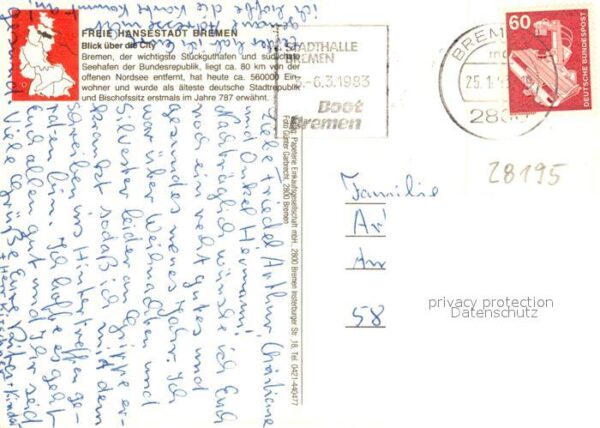 FREIE HANSESTADT BREMEN
Blick über die City
Bremen, der wichtigste Stückguthafen und südlichste
Seehafen der Bundesrepublik, liegt ca. 80 km von der
offenen Nordsee entfernt, hat heute ca. 560000 Ein-
wohner und wurde als älteste deutsche Stadtrepublik
und Bischofssitz erstmals im Jahre 787 erwähnt.
STADTHALLE
BREMEN
-6.3.1983
Boot
Bremen
BREM
25.1.
28
60
DEUTSCHE BUNDESPOST
28195
Familie
58
privacy protection
Datenschutz
Papeterie Einkaufsgesellschaft mbH, 2800 Bremen Insterburger Str. 18, Tel. 0421-440477
Foto Günter Garbrecht, 2800 Bremen
Liebe Friedel, Arthur, Christiane
und Onkel Hermann!
Nachträglich wünsche ich Euch
noch ein recht gutes und
gesundes neues Jahr. Ich
war über Weihnachten und
Silvester leider an Grippe er-
krankt sodaß ich mit dem
Schreiben ins Hintertreffen ge-
raten bin. Ich hoffe es geht
Euch allen gut und Ihr seid
Viele Grüße Eure